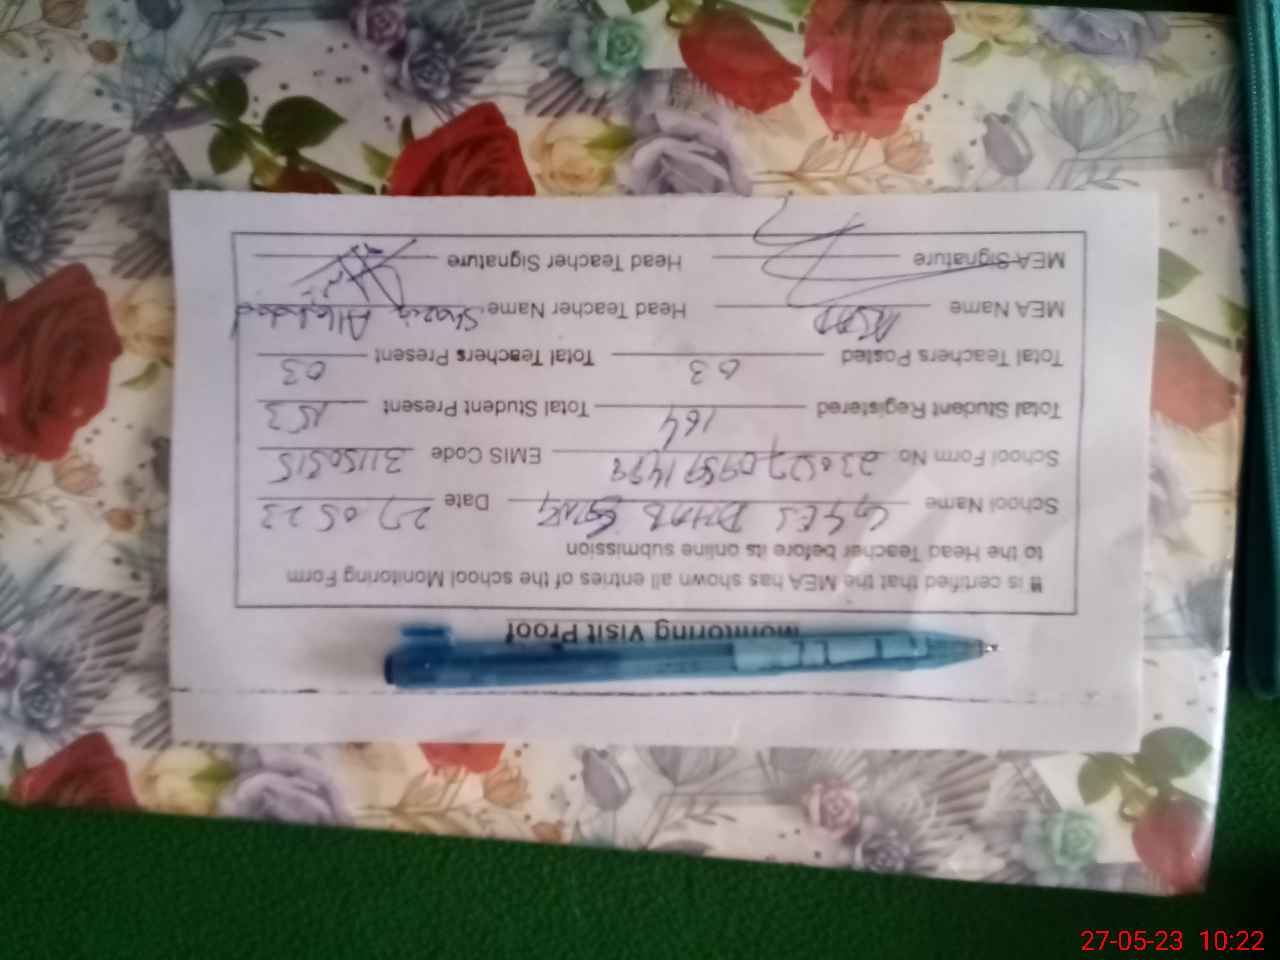 Monitoring Visit Proof
It is certified that the MEA has shown all entries of the school Monitoring Form
to the Head Teacher before its online submission
School Name GGES Date 27 05 23
School Form No EMIS Code 31150515
Total Student Registered 164 Total Student Present 153
Total Teachers Posted 03 Total Teachers Present 03
MEA Name Head Teacher Name Shazia Allahdad
MEA Signature Head Teacher Signature
27-05-23 10:22